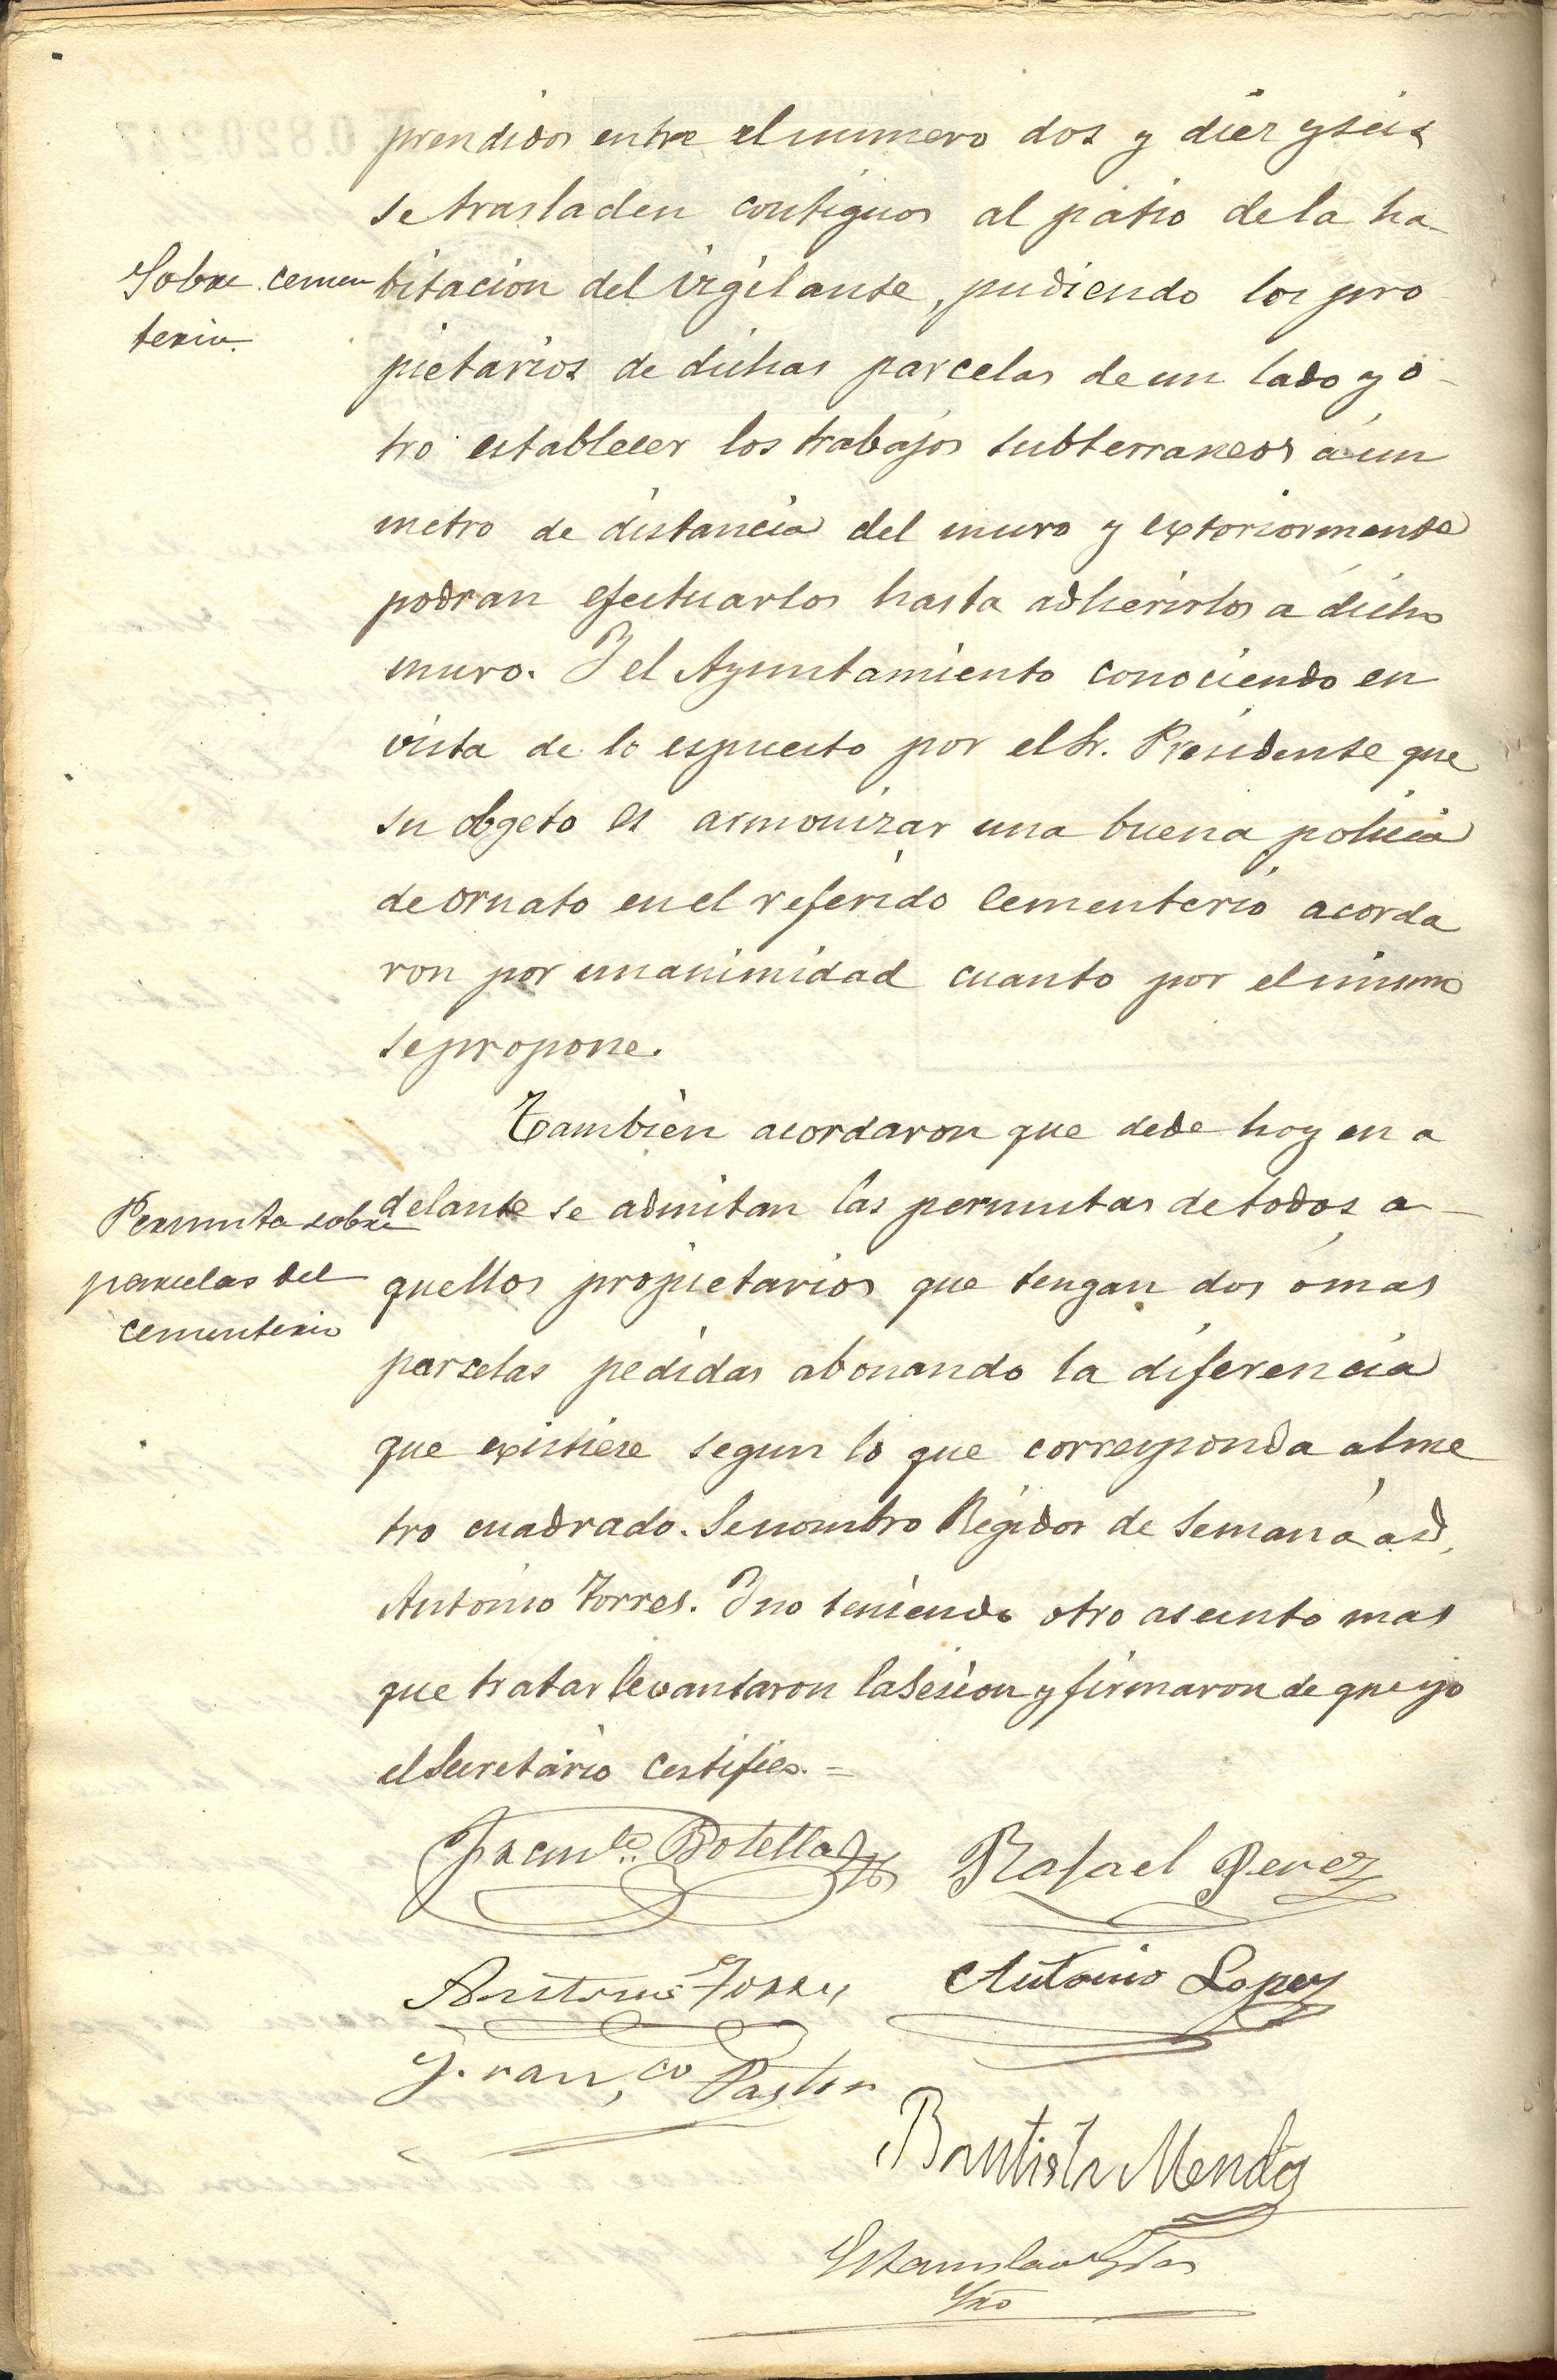 prendidos entre el numero dos y diez y seis
se trasladen contiguos al patio de la ha-
Sobre cemen
terio.
bitacion del vigilante, pudiendo los pro
pietarios de dichas parcelas de un lado y o-
tro establecer los trabajos subterraneos á un
metro de distancia del muro y extoriormente
podran efectuarlos hasta adherirlos a dicho
muro. Y el Ayuntamiento conociendo en
vista de lo espuesto por el Sr. Presidente que
su objeto es armonizar una buena policia
de ornato en el referido Cementerio acorda
ron por unanimidad cuanto por el mismo
se propone.
Tambien acordaron que dede hoy en a
Permuta sobre
parcelas del
cementerio
delante se admitan las permutas de todos a-
quellos propietarios que tengan dos ó mas
parcelas pedidas abonando la diferencia
que existiese segun lo que corresponda al me
tro cuadrado. Se nombro Regidor de Semana á D.
Antonio Torres. Y no teniendo otro asunto mas
que tratar levantaron la Sesion y firmaron de que yo
el Secretario Certifico.=
Botella
Rafael Perez
Antonio Torres
Antonio Lopez
Fran,co Pastor
Bautista Mendez
Estanislao
Srio